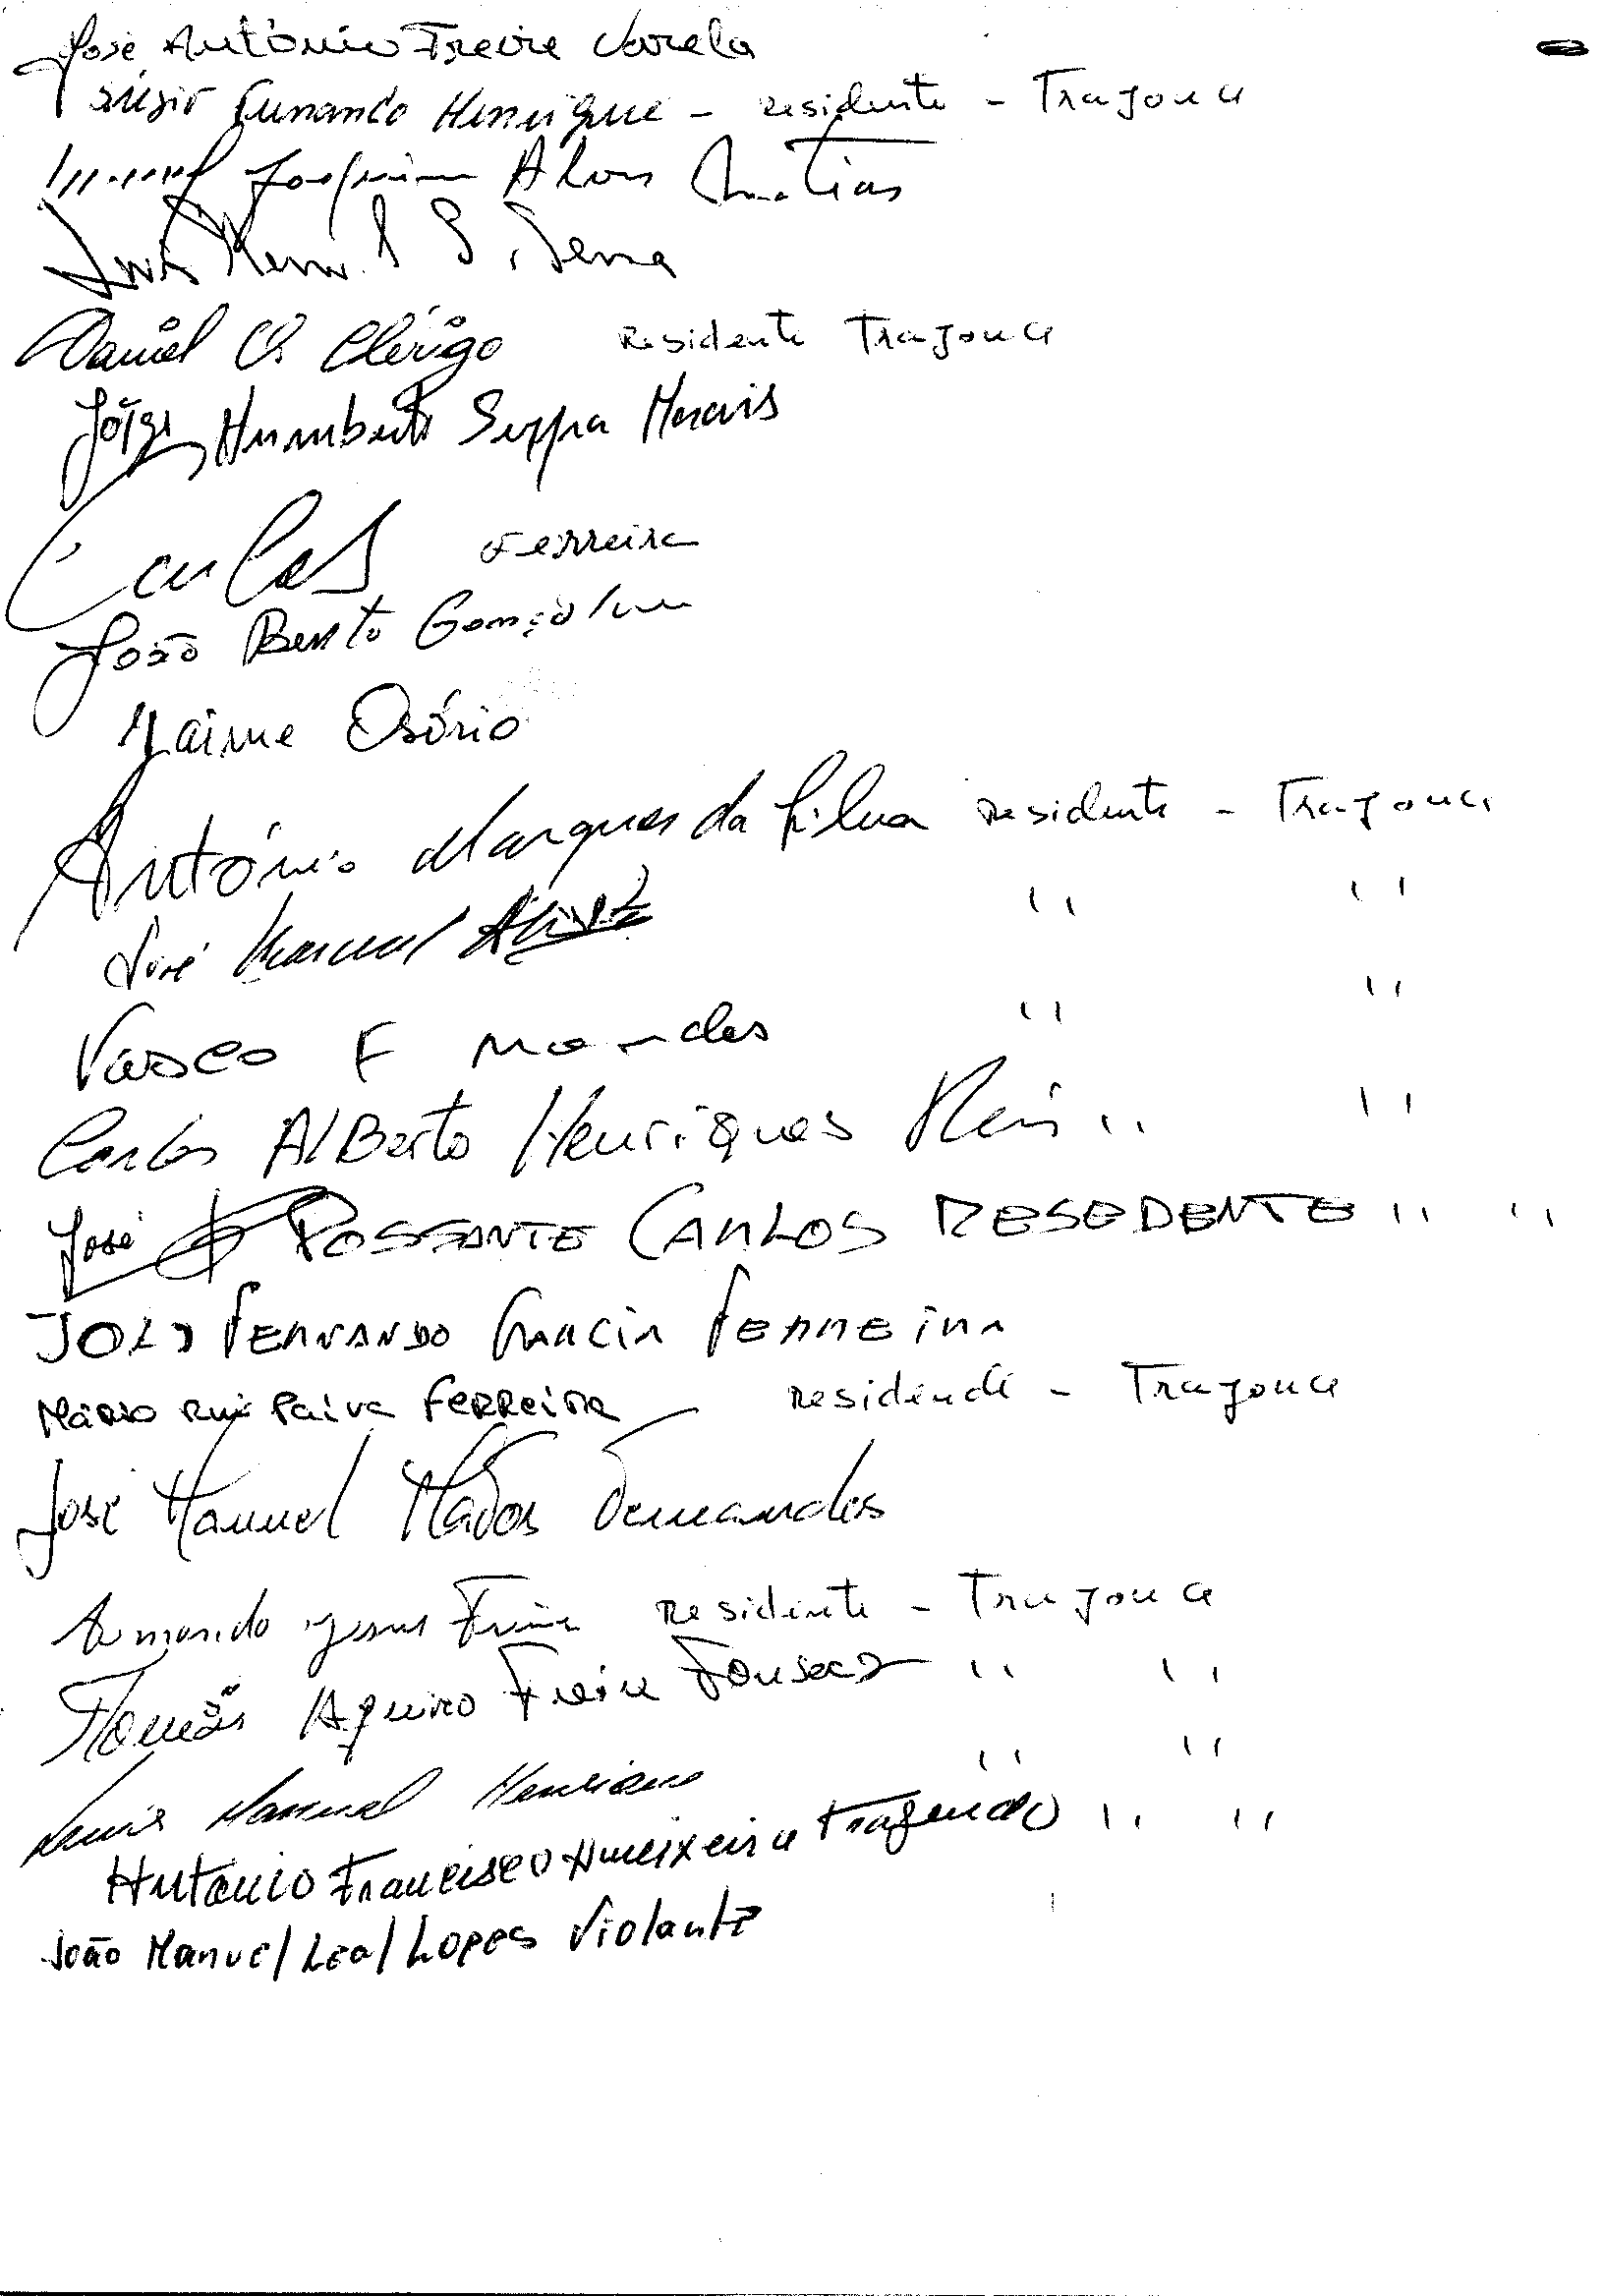 José António Freire Varela
Fernando Henrique - residente - Trajouce
Joaquim Alves Matias
Luis Manuel S. Serra
Daniel O. Clérigo residente Trajouce
Jorge Humberto Serpa Morais
Carlos Ferreira
João Bento Gonçalves
Jaime Osório
António Marques da Silva residente - Trajouce
José Manuel Alves " "
Vasco F Mendes " "
Carlos Alberto Henriques Reis " "
José POSSANTE CARLOS RESEDENTE " "
JOÃO FERNANDO GARCIA FERREIRA
Mário Rui Paiva Ferreira - residente - Trajouce
José Manuel Fernandes
Armando Jesus Freire residente - Trajouce
Tomás Aquino Freire Fonseca " "
Luis Manuel Henriques " "
António Francisco Ameixeira Tragendo " "
João Manuel Leal Lopes Violante